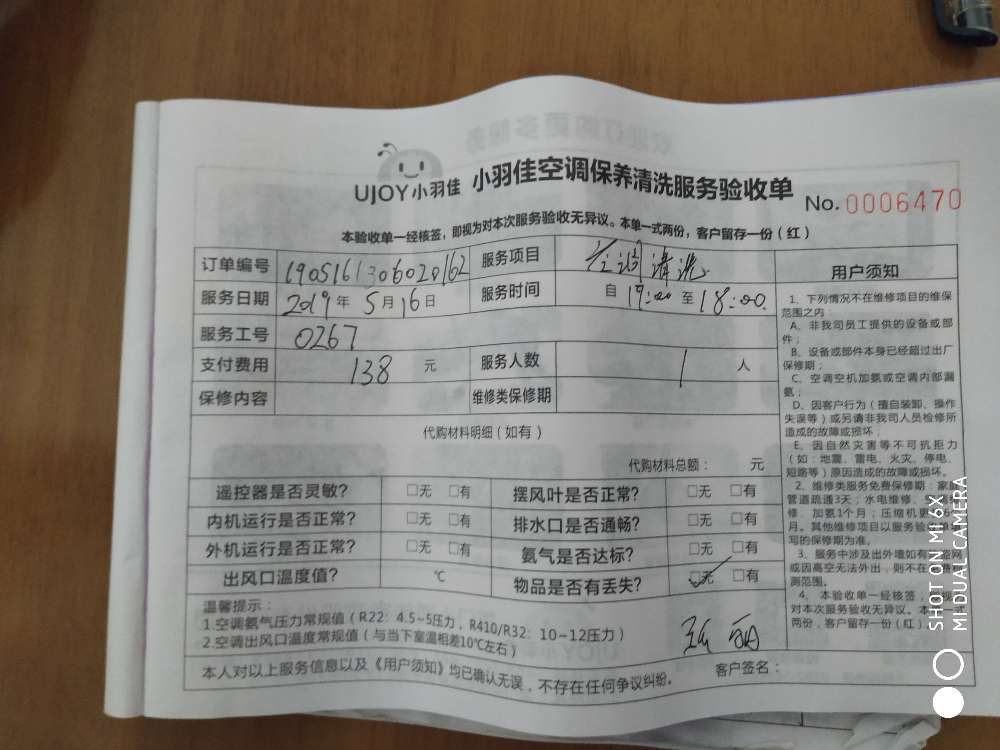 UJOY小羽佳 小羽佳空调保养清洗服务验收单 No. 0006470
本验收单一经核签，即视为对本次服务验收无异议。本单一式两份，客户留存一份（红）
订单编号 1905161306020162 服务项目 空调清洗
服务日期 2019年5月16日 服务时间 自17:00至18:00
服务工号 0267
支付费用 138 元 服务人数 1 人
保修内容 维修类保修期
代购材料明细（如有）
代购材料总额： 元
遥控器是否灵敏？ □无 □有 摆风叶是否正常？ □无 □有
内机运行是否正常？ □无 □有 排水口是否通畅？ □无 □有
外机运行是否正常？ □无 □有 氨气是否达标？ □无 □有
出风口温度值？ ℃ 物品是否有丢失？ ☑无 □有
温馨提示：
1.空调氨气压力常规值（R22：4.5~5压力，R410/R32：10~12压力）
2.空调出风口温度常规值（与当下室温相差10℃左右）
本人对以上服务信息以及《用户须知》均已确认无误，不存在任何争议纠纷。 客户签名：
用户须知
1、下列情况不在维修项目的维保
范围之内：
A、非我司员工提供的设备或部
件；
B、设备或部件本身已经超过出厂
保修期；
C、空调空机加氨或空调内部漏
氨；
D、因客户行为（擅自装卸、操作
失误等）或另请非我司人员检修所
造成的故障或损坏；
E、因自然灾害等不可抗拒力
（如：地震、雷电、火灾、停电、
短路等）原因造成的故障或损坏。
2、维修类服务免费保修期：家
管道疏通3天；水电维修、
修、加氨1个月；压缩机
月。其他维修项目以服务验
写的保修期为准。
3、服务中涉及出外墙如有
或因高空无法外出，则不在
测范围。
4、本验收单一经核签，
对本次服务验收无异议。本
两份，客户留存一份（红）
SHOT ON MI 6X
MI DUAL CAMERA